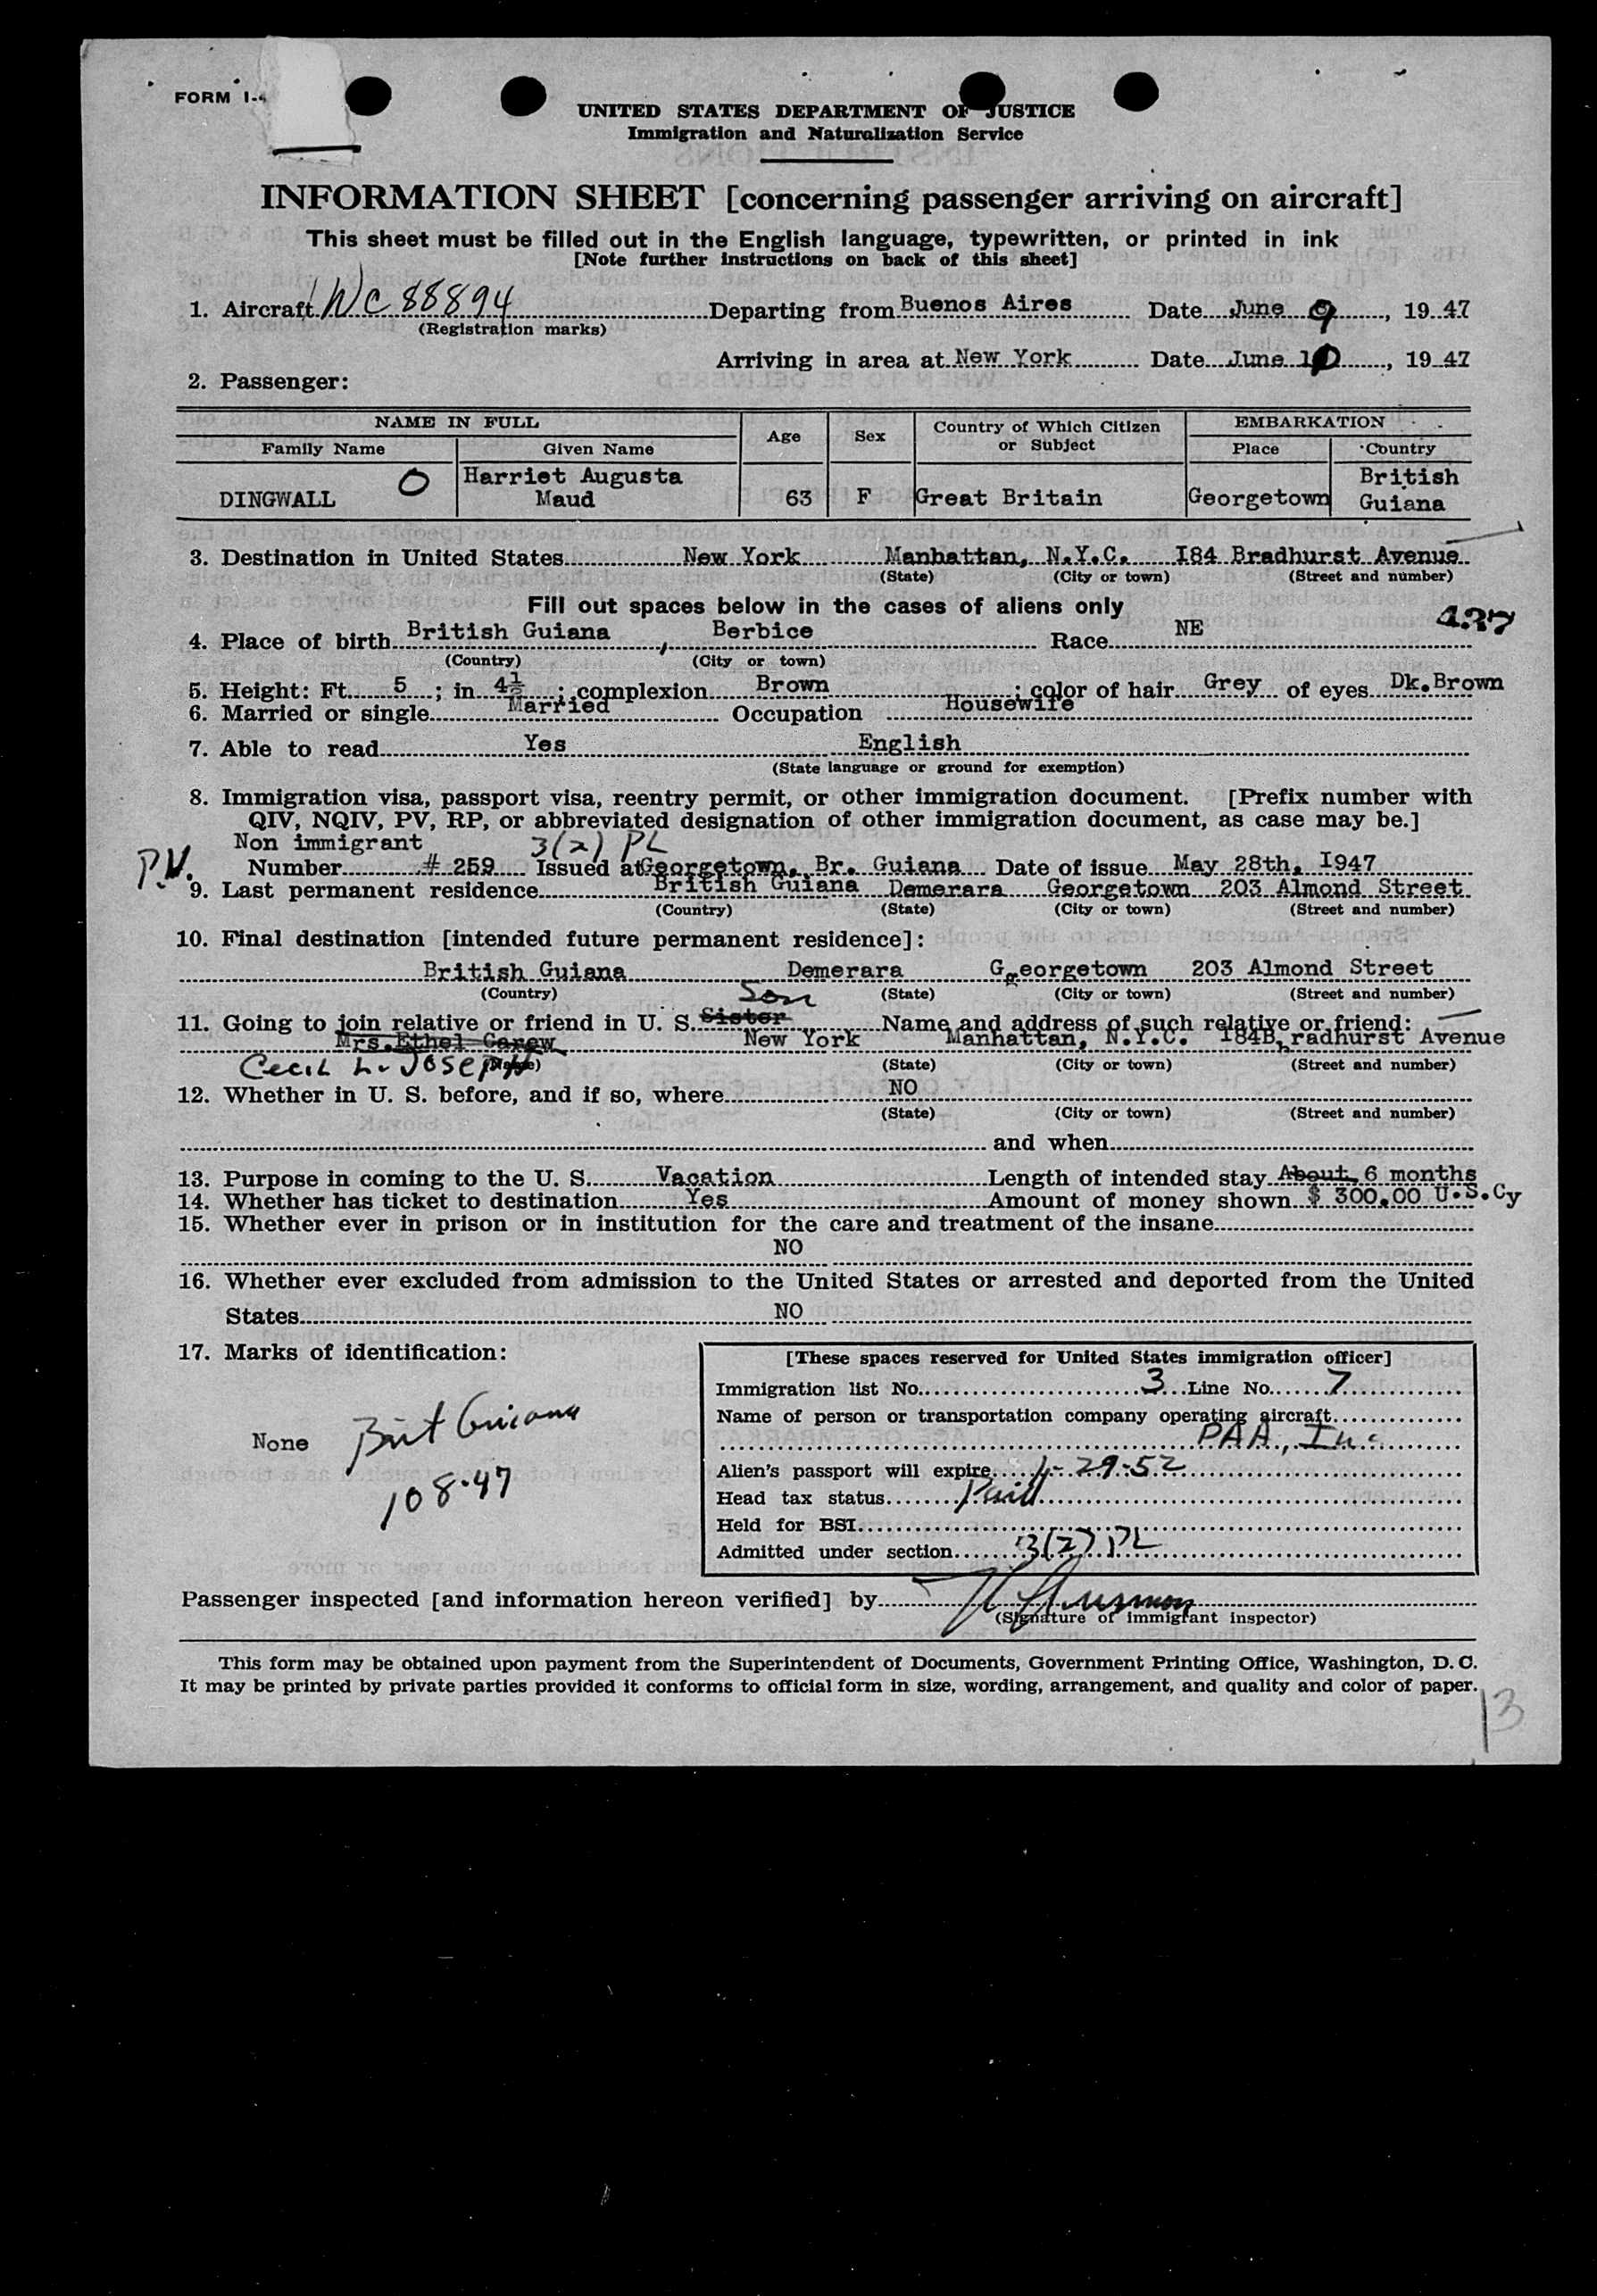 FORM I-4
UNITED STATES DEPARTMENT OF JUSTICE
Immigration and Naturalization Service
INFORMATION SHEET [concerning passenger arriving on aircraft]
This sheet must be filled out in the English language, typewritten, or printed in ink
[Note further instructions on back of this sheet]
1. Aircraft NC 88894 Departing from Buenos Aires Date June 9, 19 47
(Registration marks)
Arriving in area at New York Date June 10, 19 47
2. Passenger:
NAME IN FULL Age Sex Country of Which Citizen or Subject EMBARKATION
Family Name Given Name Place Country
DINGWALL O Harriet Augusta Maud 63 F Great Britain Georgetown British Guiana
3. Destination in United States New York Manhattan, N.Y.C. I84 Bradhurst Avenue
(State) (City or town) (Street and number)
Fill out spaces below in the cases of aliens only
437
4. Place of birth British Guiana, Berbice Race NE
(Country) (City or town)
5. Height: Ft. 5; in 4½; complexion Brown; color of hair Grey of eyes Dk.Brown
6. Married or single Married Occupation Housewife
7. Able to read Yes English
(State language or ground for exemption)
8. Immigration visa, passport visa, reentry permit, or other immigration document. [Prefix number with
QIV, NQIV, PV, RP, or abbreviated designation of other immigration document, as case may be.]
Non immigrant 3(2) PL
P.V. Number # 259 Issued at Georgetown, Br. Guiana Date of issue May 28th, I947
9. Last permanent residence British Guiana Demerara Georgetown 203 Almond Street
(Country) (State) (City or town) (Street and number)
10. Final destination [intended future permanent residence]:
British Guiana Demerara Ggeorgetown 203 Almond Street
(Country) (State) (City or town) (Street and number)
Son
11. Going to join relative or friend in U. S. Sister Name and address of such relative or friend:
Mrs.Ethel Carew New York Manhattan, N.Y.C. I84B,radhurst Avenue
Cecil L. Joseph (Name) (State) (City or town) (Street and number)
12. Whether in U. S. before, and if so, where NO
(State) (City or town) (Street and number)
and when
13. Purpose in coming to the U. S. Vacation Length of intended stay About 6 months
14. Whether has ticket to destination Yes Amount of money shown $ 300.00 U.S.Cy
15. Whether ever in prison or in institution for the care and treatment of the insane
NO
16. Whether ever excluded from admission to the United States or arrested and deported from the United
States NO
17. Marks of identification:
None Brit Guiana
108-47
[These spaces reserved for United States immigration officer]
Immigration list No. 3 Line No. 7
Name of person or transportation company operating aircraft
PAA, Inc
Alien's passport will expire 4-29-52
Head tax status Paid
Held for BSI
Admitted under section 3(2) PL
Passenger inspected [and information hereon verified] by
(Signature of immigrant inspector)
This form may be obtained upon payment from the Superintendent of Documents, Government Printing Office, Washington, D. C.
It may be printed by private parties provided it conforms to official form in size, wording, arrangement, and quality and color of paper.
13